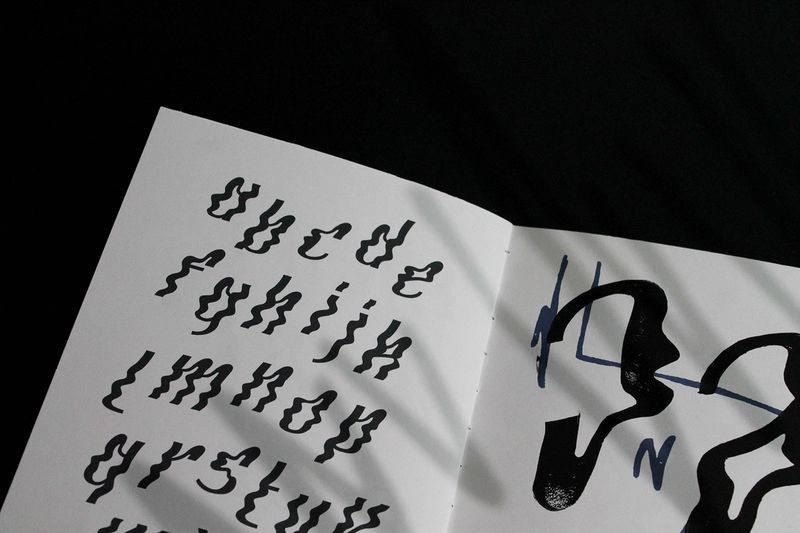 abcde
fghijk
lmnop
qrstuv
N